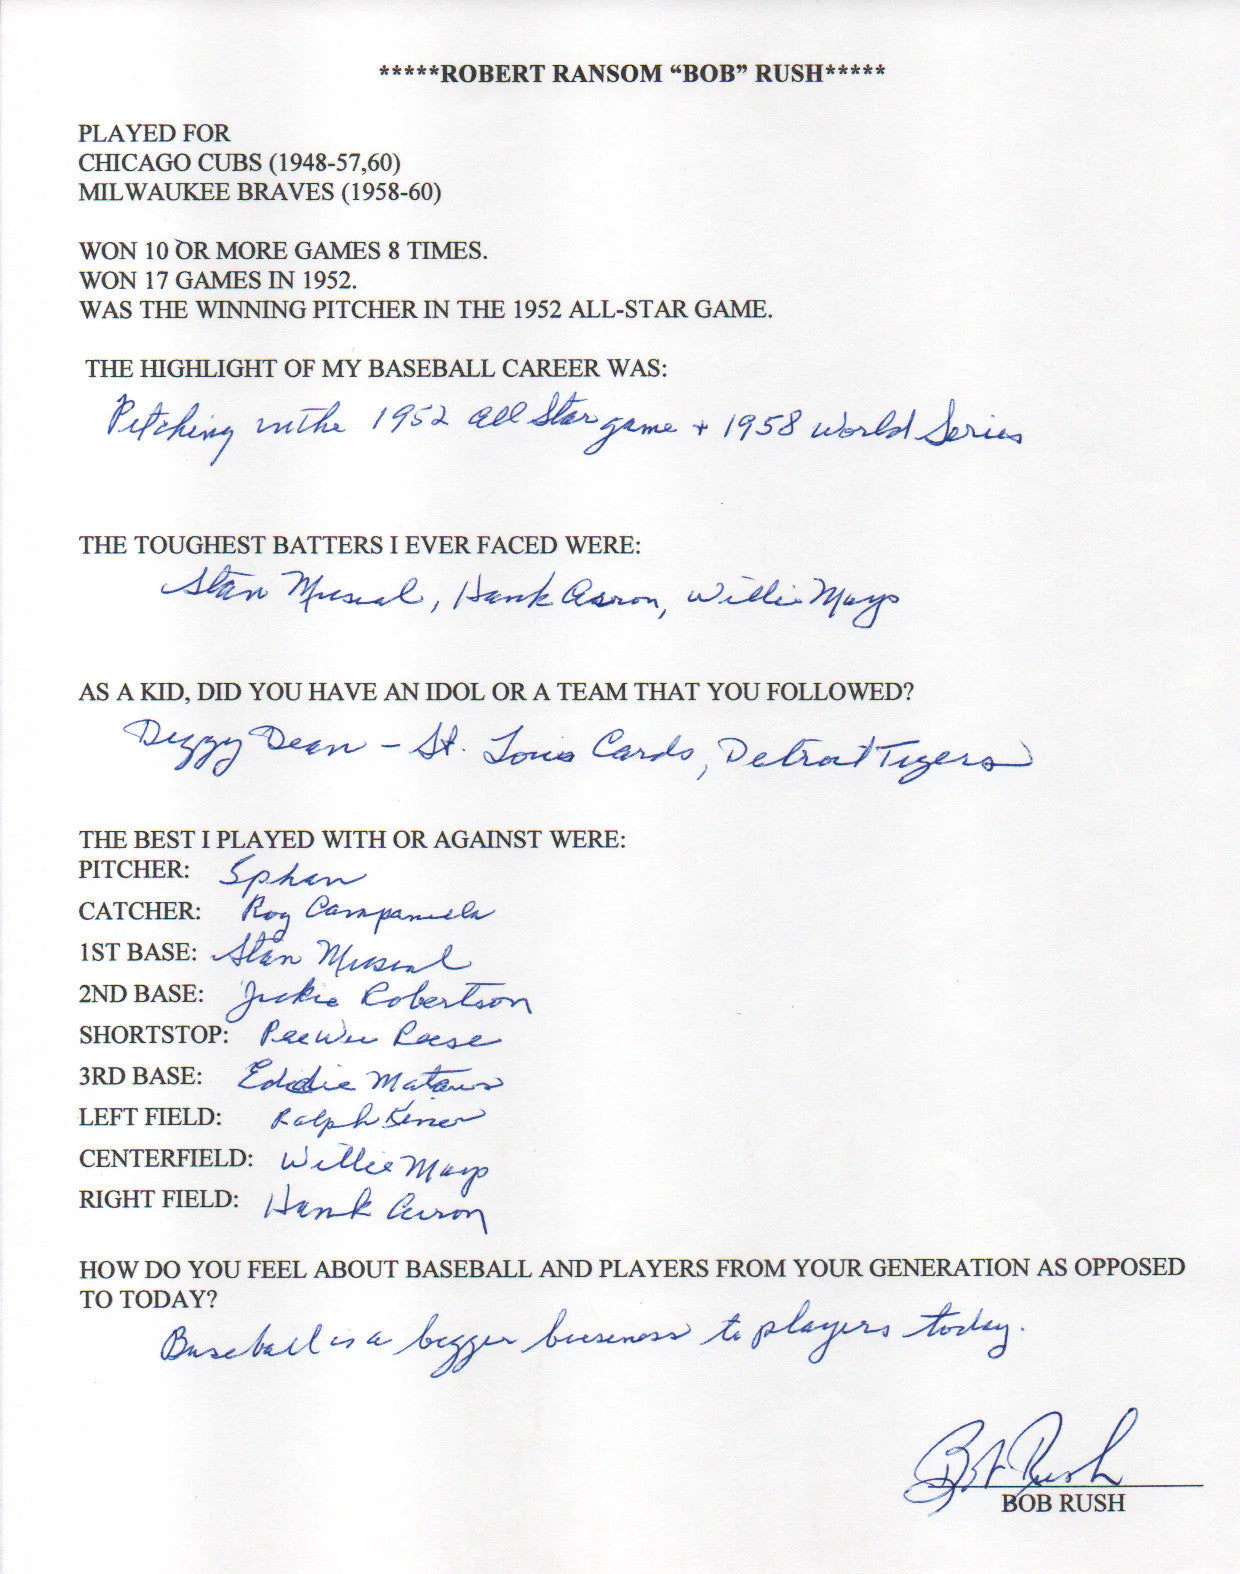 *****ROBERT RANSOM “BOB” RUSH*****
PLAYED FOR
CHICAGO CUBS (1948-57,60)
MILWAUKEE BRAVES (1958-60)
WON 10 OR MORE GAMES 8 TIMES.
WON 17 GAMES IN 1952.
WAS THE WINNING PITCHER IN THE 1952 ALL-STAR GAME.
THE HIGHLIGHT OF MY BASEBALL CAREER WAS:
Pitching in the 1952 all Star game + 1958 World Series
THE TOUGHEST BATTERS I EVER FACED WERE:
Stan Musial, Hank Aaron, Willie Mays
AS A KID, DID YOU HAVE AN IDOL OR A TEAM THAT YOU FOLLOWED?
Dizzy Dean - St. Louis Cards, Detroit Tigers
THE BEST I PLAYED WITH OR AGAINST WERE:
PITCHER: Sphan
CATCHER: Roy Campanella
1ST BASE: Stan Musial
2ND BASE: Jackie Robertson
SHORTSTOP: PeeWee Reese
3RD BASE: Eddie Matews
LEFT FIELD: Ralph Kiner
CENTERFIELD: Willie Mays
RIGHT FIELD: Hank Aaron
HOW DO YOU FEEL ABOUT BASEBALL AND PLAYERS FROM YOUR GENERATION AS OPPOSED
TO TODAY?
Baseball is a bigger business to players today.
Bob Rush
BOB RUSH